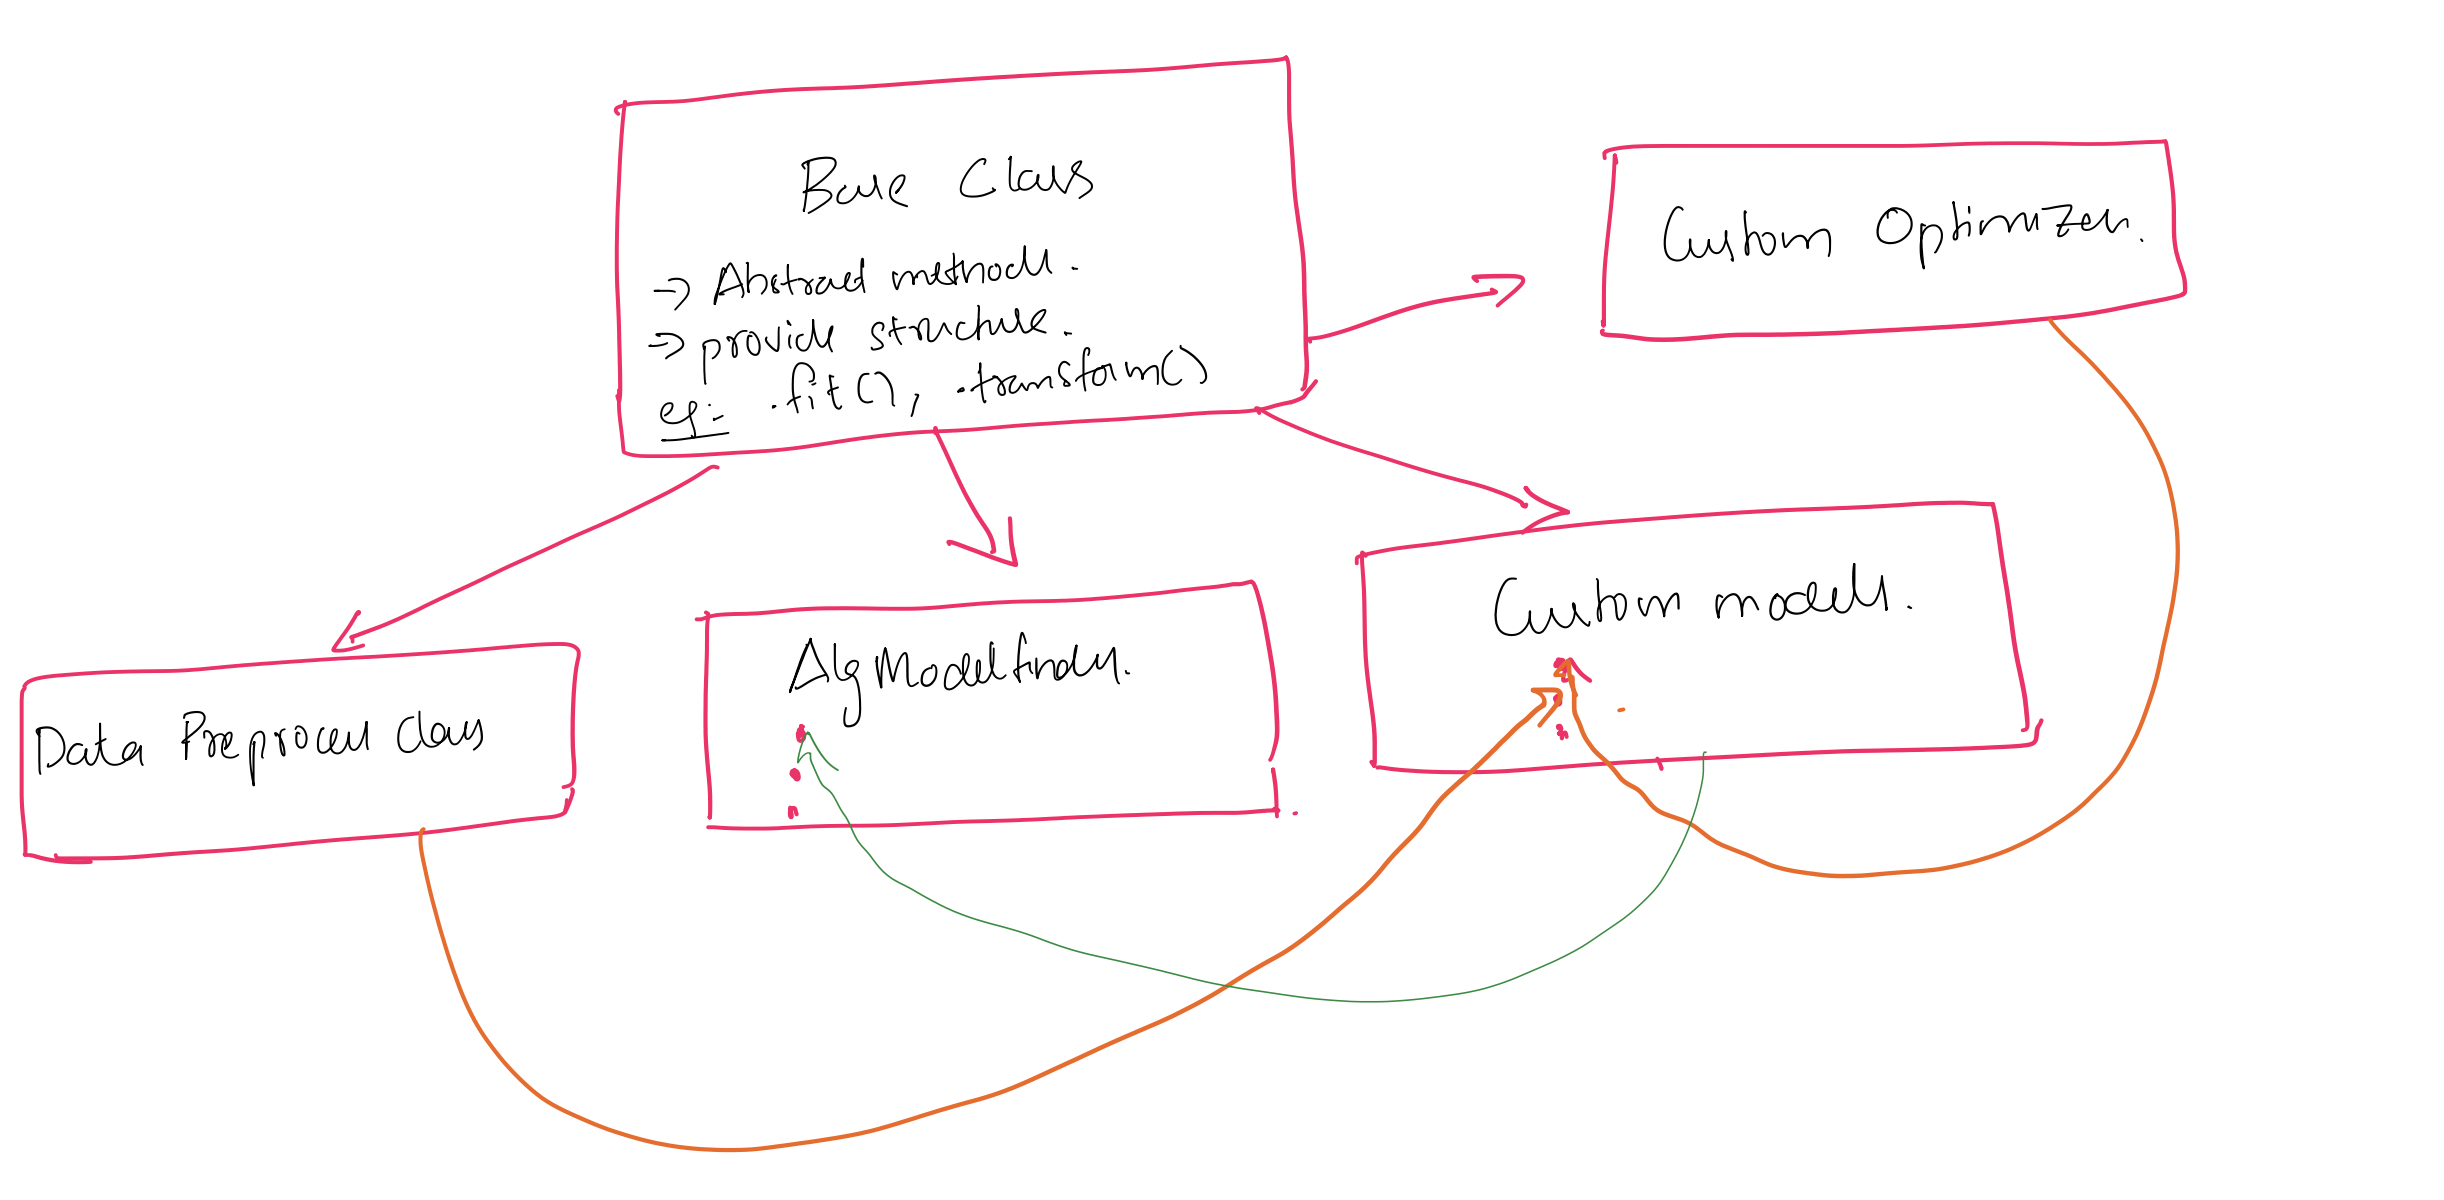 Base Class
→ Abstract methods.
→ provide structure.
eg:- .fit(), .transform()
Custom Optimizer.
Data Preprocess Class
Alg Model finder.
Custom models.